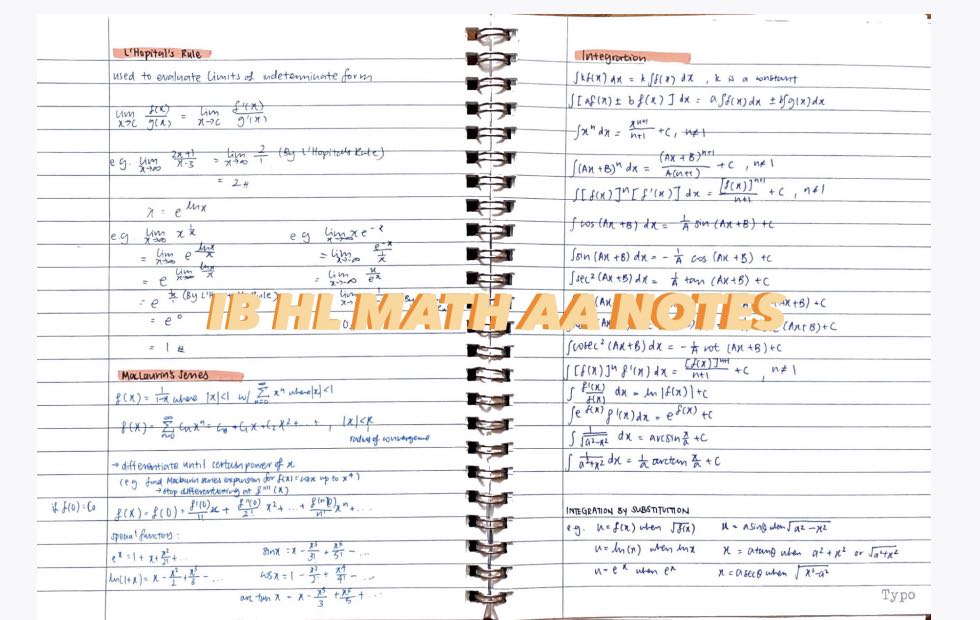 L'Hopital's Rule
used to evaluate limits of indeterminate form
lim x→c f(x)/g(x) = lim x→c f'(x)/g'(x)
e.g. lim x→∞ 2x+1/x-3 = lim x→∞ 2/1 (By L'Hopital's Rule)
= 2 #
x = e^lnx
e.g lim x→∞ x^1/x
= lim x→∞ e^lnx/x
= e^lim x→∞ lnx/x
= e^0
= 1 #
e g lim x→∞ xe^-x
= lim x→∞ e^-x/1/x
= lim x→∞ x/e^x
Maclaurin's Series
f(x) = 1/1-x where |x|<1 w/ ∑ n=0 ∞ x^n where |x|<1
f(x) = ∑ n=0 ∞ Cnx^n = C0 + C1x + C2x^2 + ... + , |x|<
radius of convergence
→ differentiate until certain power of x
(e.g find Maclaurin series expansion for f(x) = cosx up to x^4)
→ stop differentiating at f''''(x)
f(0) = C0
f(x) = f(0) + f'(0)/1! x + f''(0)/2! x^2 + ... + f^(n)(0)/n! x^n ...
special functions:
e^x = 1 + x + x^2/2! + ...
sinx = x - x^3/3! + x^5/5! - ...
ln(1+x) = x - x^2/2 + x^3/3 - ...
cosx = 1 - x^2/2! + x^4/4! - ...
arc tan x = x - x^3/3 + x^5/5 + ...
IB HL MATH AA NOTES
Integration
∫kf(x) dx = k∫f(x) dx , k is a constant
∫[af(x) ± b f(x)] dx = a∫f(x)dx ± b∫g(x)dx
∫x^n dx = x^n+1/n+1 + C, n≠1
∫(Ax+B)^n dx = (Ax+B)^n+1/A(n+1) + C , n≠1
∫[f(x)]^n [f'(x)] dx = [f(x)]^n+1/n+1 + C , n≠1
∫cos(Ax+B) dx = 1/A sin(Ax+B) + C
∫sin(Ax+B) dx = -1/A cos(Ax+B) + C
∫sec^2(Ax+B) dx = 1/A tan(Ax+B) + C
(Ax+B) + C
(Ax+B) + C
∫cosec^2(Ax+B) dx = -1/A cot(Ax+B) + C
∫[f(x)]^n f'(x) dx = [f(x)]^n+1/n+1 + C , n≠1
∫f'(x)/f(x) dx = ln|f(x)| + C
∫e^f(x) f'(x) dx = e^f(x) + C
∫1/√a^2-x^2 dx = arcsin x/a + C
∫1/a^2+x^2 dx = 1/a arctan x/a + C
INTEGRATION BY SUBSTITUTION
e.g. u = f(x) when √f(x)
u = ln(x) when lnx
u = e^x when e^x
x = asinθ when √a^2-x^2
x = atanθ when a^2+x^2 or √a^2+x^2
x = asecθ when √x^2-a^2
Typo